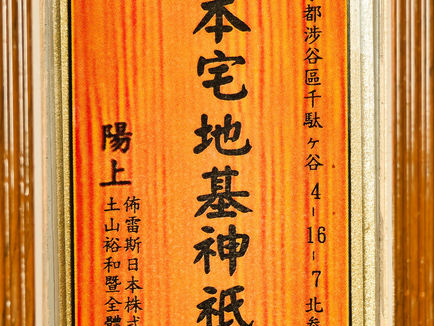 都涉谷區千駄ヶ谷4-16-7北参
本宅地基神祇
陽上
佈雷斯日本株式
土山裕和暨全體